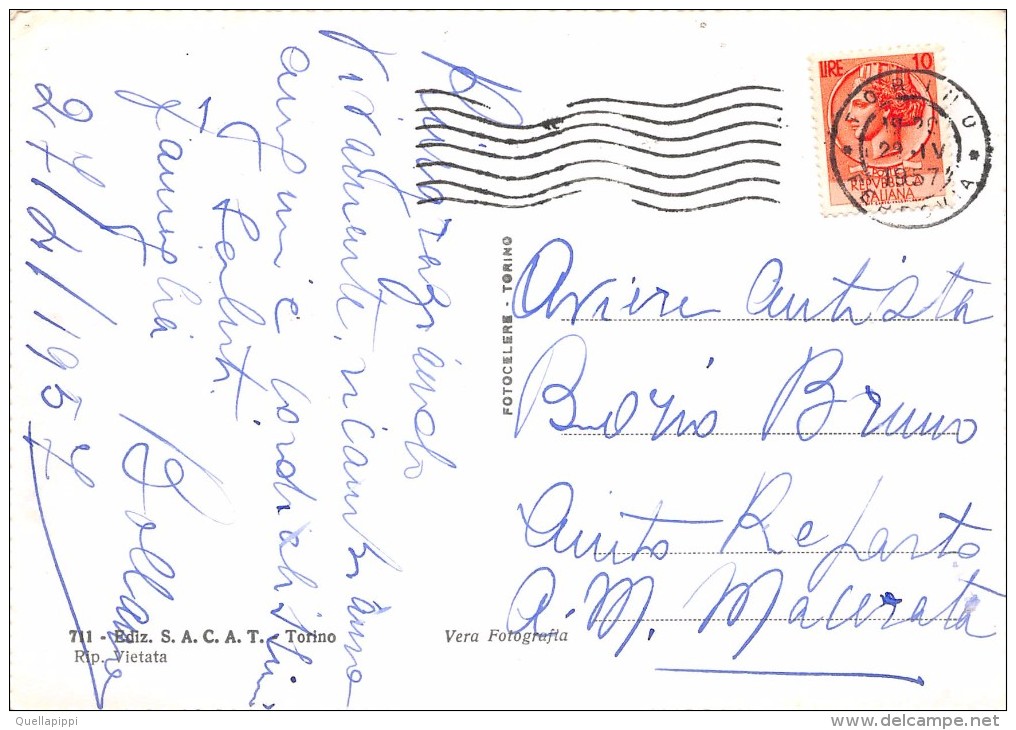 Ringraziando
vivamente, ricambiamo
auguri e cordialissimi
saluti.
Famiglia
27/4/1957
LIRE 10
TORINO
22 . IV
1957
FERROVIA
REPVBBLICA
ITALIANA
FOTOCELERE - TORINO
Aviere Autista
Bruno
Auto Reparto
A. M. Macerata
711 - Ediz. S. A. C. A. T. - Torino
Rip. Vietata
Vera Fotografia
Quellapippi
www.delcampe.net